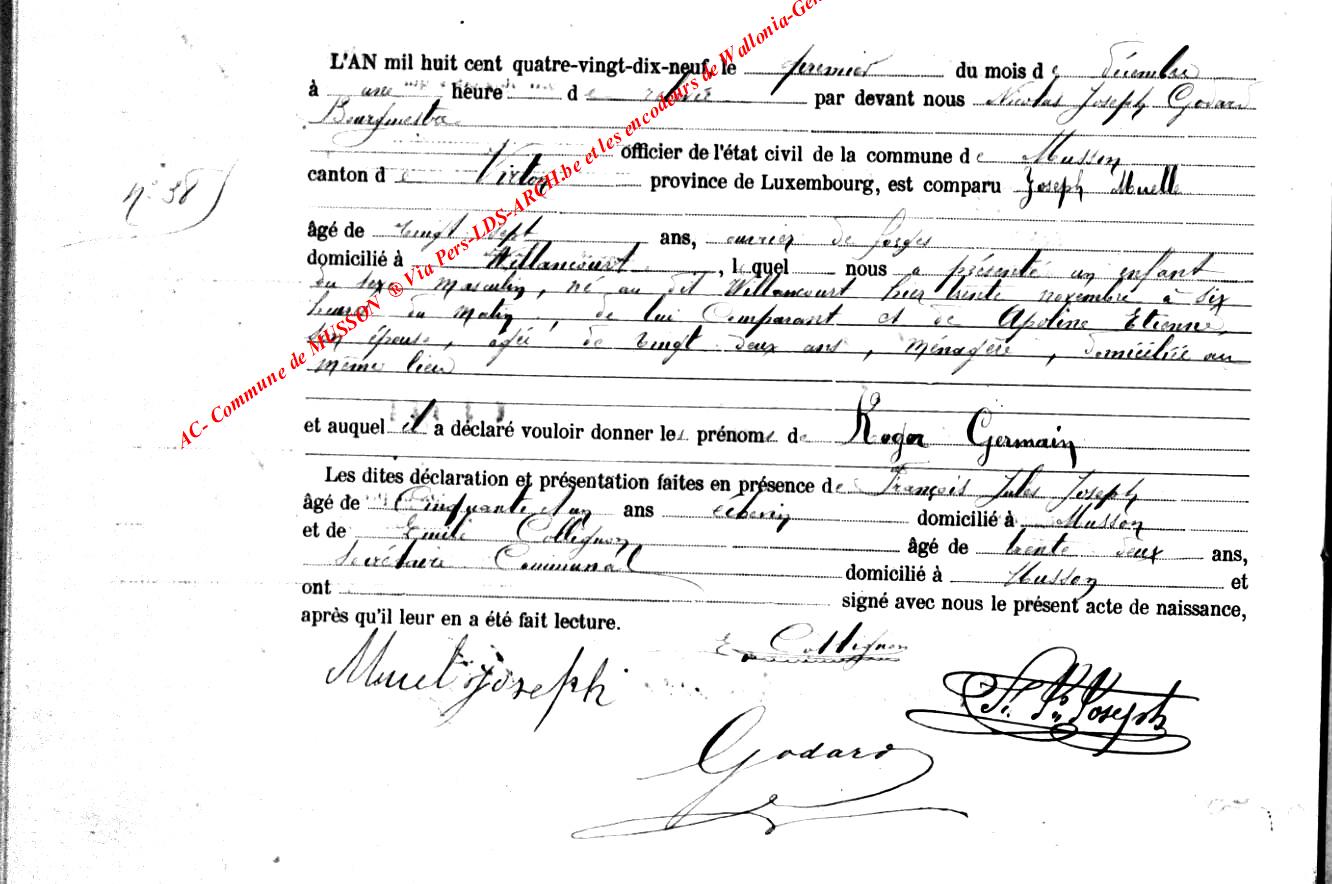 L'AN mil huit cent quatre-vingt-dix-neuf, le premier du mois de décembre
à une heure de relevée par devant nous Nicolas Joseph Godard
Bourgmestre
officier de l'état civil de la commune de Musson
canton de Virton province de Luxembourg, est comparu Joseph Muelle
n° 38
âgé de vingt sept ans, ouvrier de forges
domicilié à Willancourt, lequel nous a présenté un enfant
du sexe masculin, né au dit Willancourt hier trente novembre à six
heures du matin, de lui Comparant et de Apoline Etienne,
son épouse, agée de vingt deux ans, ménagère, domiciliée au
même lieu
et auquel il a déclaré vouloir donner les prénoms de Roger Germain
Les dites déclaration et présentation faites en présence de François Jules Joseph
âgé de Cinquante et un ans domicilié à Musson
et de Emile Collignon âgé de trente deux ans,
Secrétaire Communal domicilié à Musson et
ont signé avec nous le présent acte de naissance,
après qu'il leur en a été fait lecture.
E Collignon
Muel Joseph
Joseph
Godard
AC- Commune de MUSSON ® Via Pers-LDS-ARCH.be et les encodeurs de Wallonia-Gen